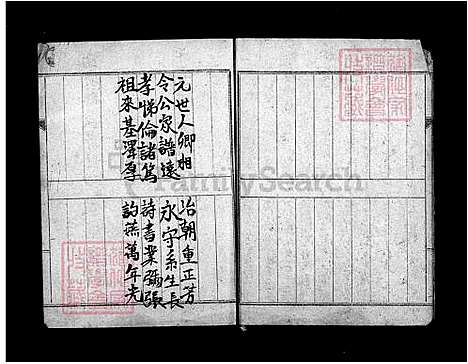 元世人卿相
令公家譜遠
孝悌倫諸篤
祖來基澤厚
治朝重正芳
永守系生長
詩書業彌張
訪燕萬年光
FamilySearch